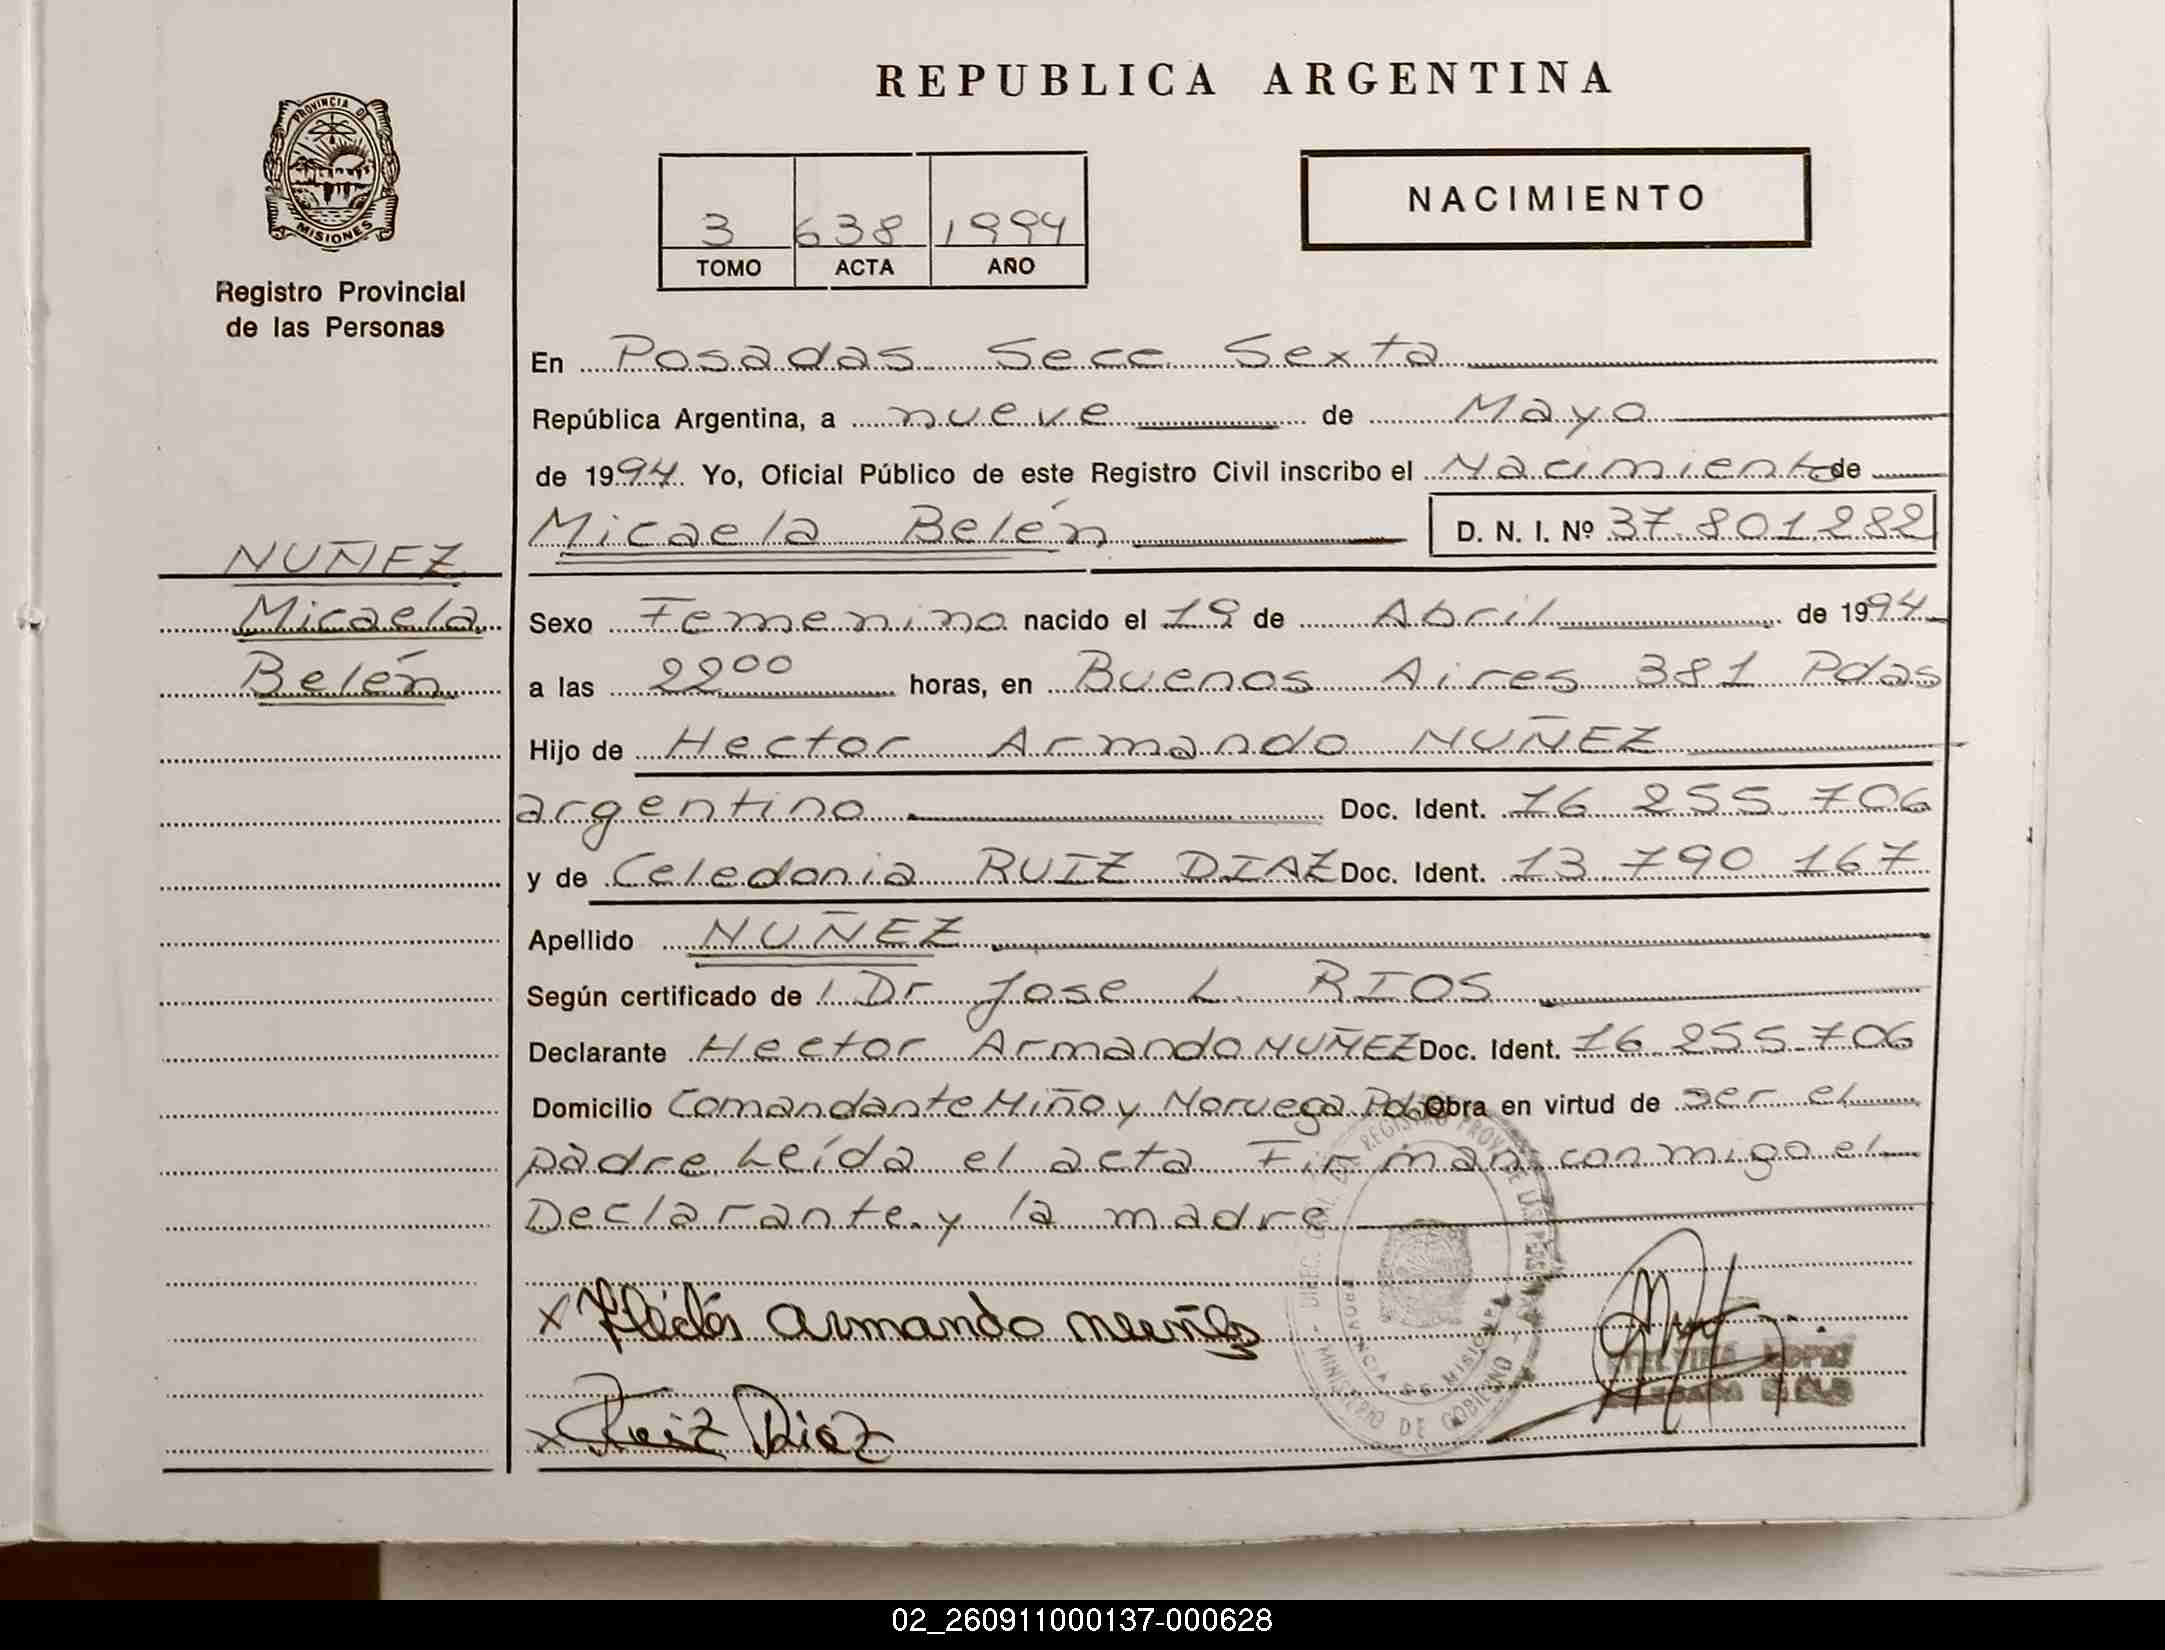 REPUBLICA ARGENTINA
PROVINCIA DE
MISIONES
Registro Provincial
de las Personas
3 638 1994
TOMO ACTA AÑO
NACIMIENTO
En Posadas Secc Sexta
República Argentina, a nueve de Mayo
de 1994 Yo, Oficial Público de este Registro Civil inscribo el Nacimiento de
Micaela Belén D. N. I. Nº 37.801.282
NUÑEZ
Micaela
Belén
Sexo Femenino nacido el 19 de Abril de 1994
a las 22 00 horas, en Buenos Aires 381 Pdas
Hijo de Hector Armando NUÑEZ
argentino Doc. Ident. 16 255 706
y de Celedonia RUIZ DIAZ Doc. Ident. 13 790 167
Apellido NUÑEZ
Según certificado de Dr Jose L RIOS
Declarante Hector Armando NUÑEZ Doc. Ident. 16 255 706
Domicilio Comandante Miño y Noruega Pdas Obra en virtud de ser el
padre Leída el acta Firman conmigo el
Declarante y la madre
x Hector Armando Nuñez
x Ruiz Diaz
DIREC. GRAL. DE REGISTRO PROV. DE LAS PERSONAS
PROVINCIA DE MISIONES
MINISTERIO DE GOBIERNO
02_260911000137-000628